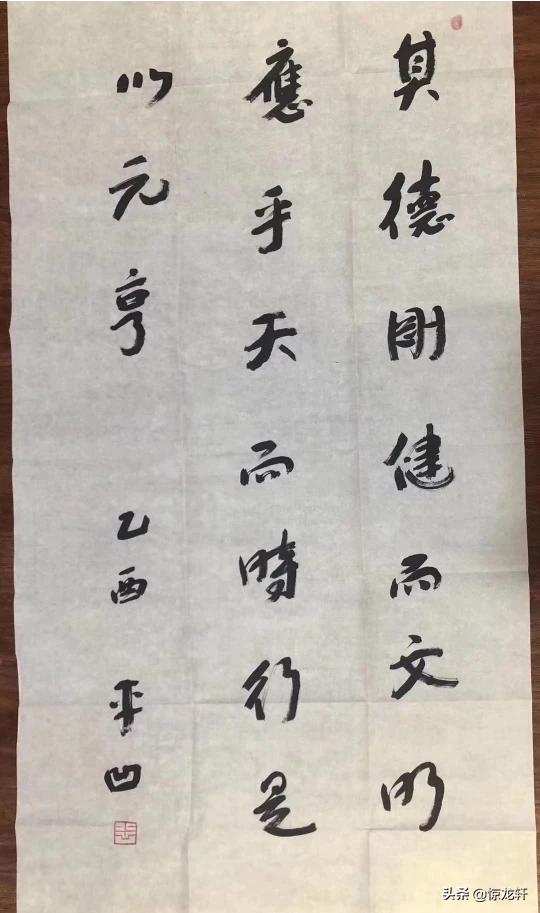 其德剛健而文明
應乎天而時行是
以元亨
乙酉 平凹
头条 @惊龙轩